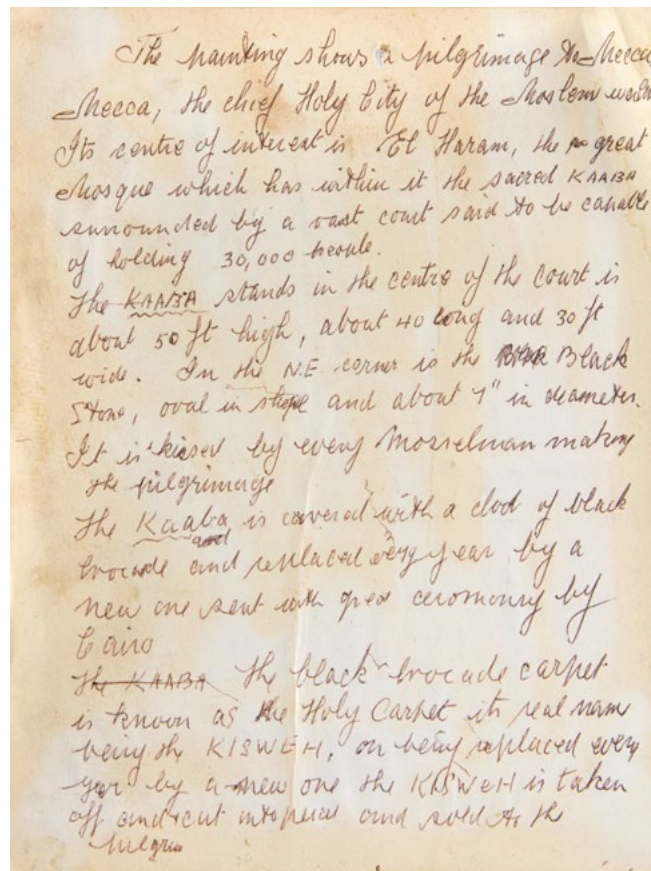 The painting shows a pilgrimage to Mecca,
Mecca, the chief Holy City of the Moslem world
Its centre of interest is El Haram, the great
Mosque which has within it the sacred KAABA
surrounded by a vast court said to be capable
of holding 30,000 people.
the KAABA stands in the centre of the court is
about 50 ft high, about 40 long and 30 ft
wide. In the N.E corner is the Black
Stone, oval in shape and about 7" in diameter.
It is kissed by every Mosselman making
the pilgrimage
the Kaaba is covered with a clod of black
brocade and replaced every year by a
and
new one sent with great ceromony by
Cairo
the KAABA the black brocade carpet
is known as the Holy Carpet its real name
being the KISWEH, on being replaced every
year by a new one the KISWEH is taken
off and cut into pieces and sold to the
pilgrims